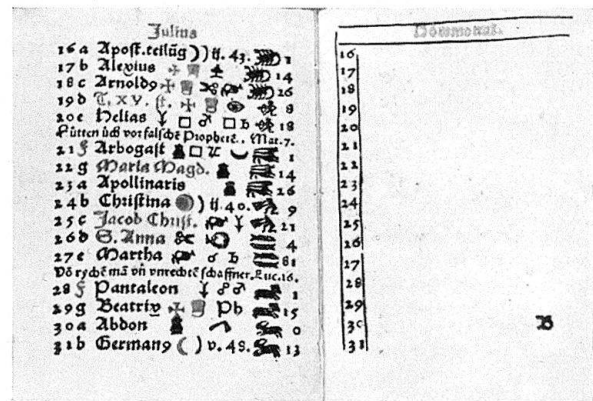 Julius
16 a Apost. teilūg )) ſt. 43. 1
17 b Alexius 14
18 c Arnold9 26
19 d T. x v. ſt. 8
20 e Helias ☐ ♂ ☐ ♄ 18
vor falsche Prophetē. Mat. 7.
21 f Arbogast ☐ 1
22 g Maria Magd. 14
23 a Apollinaris 26
24 b Christina ) ſt. 40. 9
25 c Jacob Christ. 21
26 d S. Anna 4
27 e Martha ♂ 81
Vō rychē mā vn̄ vnrechtē schaffner. Luc. 16.
28 f Pantaleon 1
29 g Beatrix 15
30 a Abdon 0
31 b German9 ) v. 48. 13
16
17
18
19
20
21
22
23
24
25
26
27
28
29
30
31
B